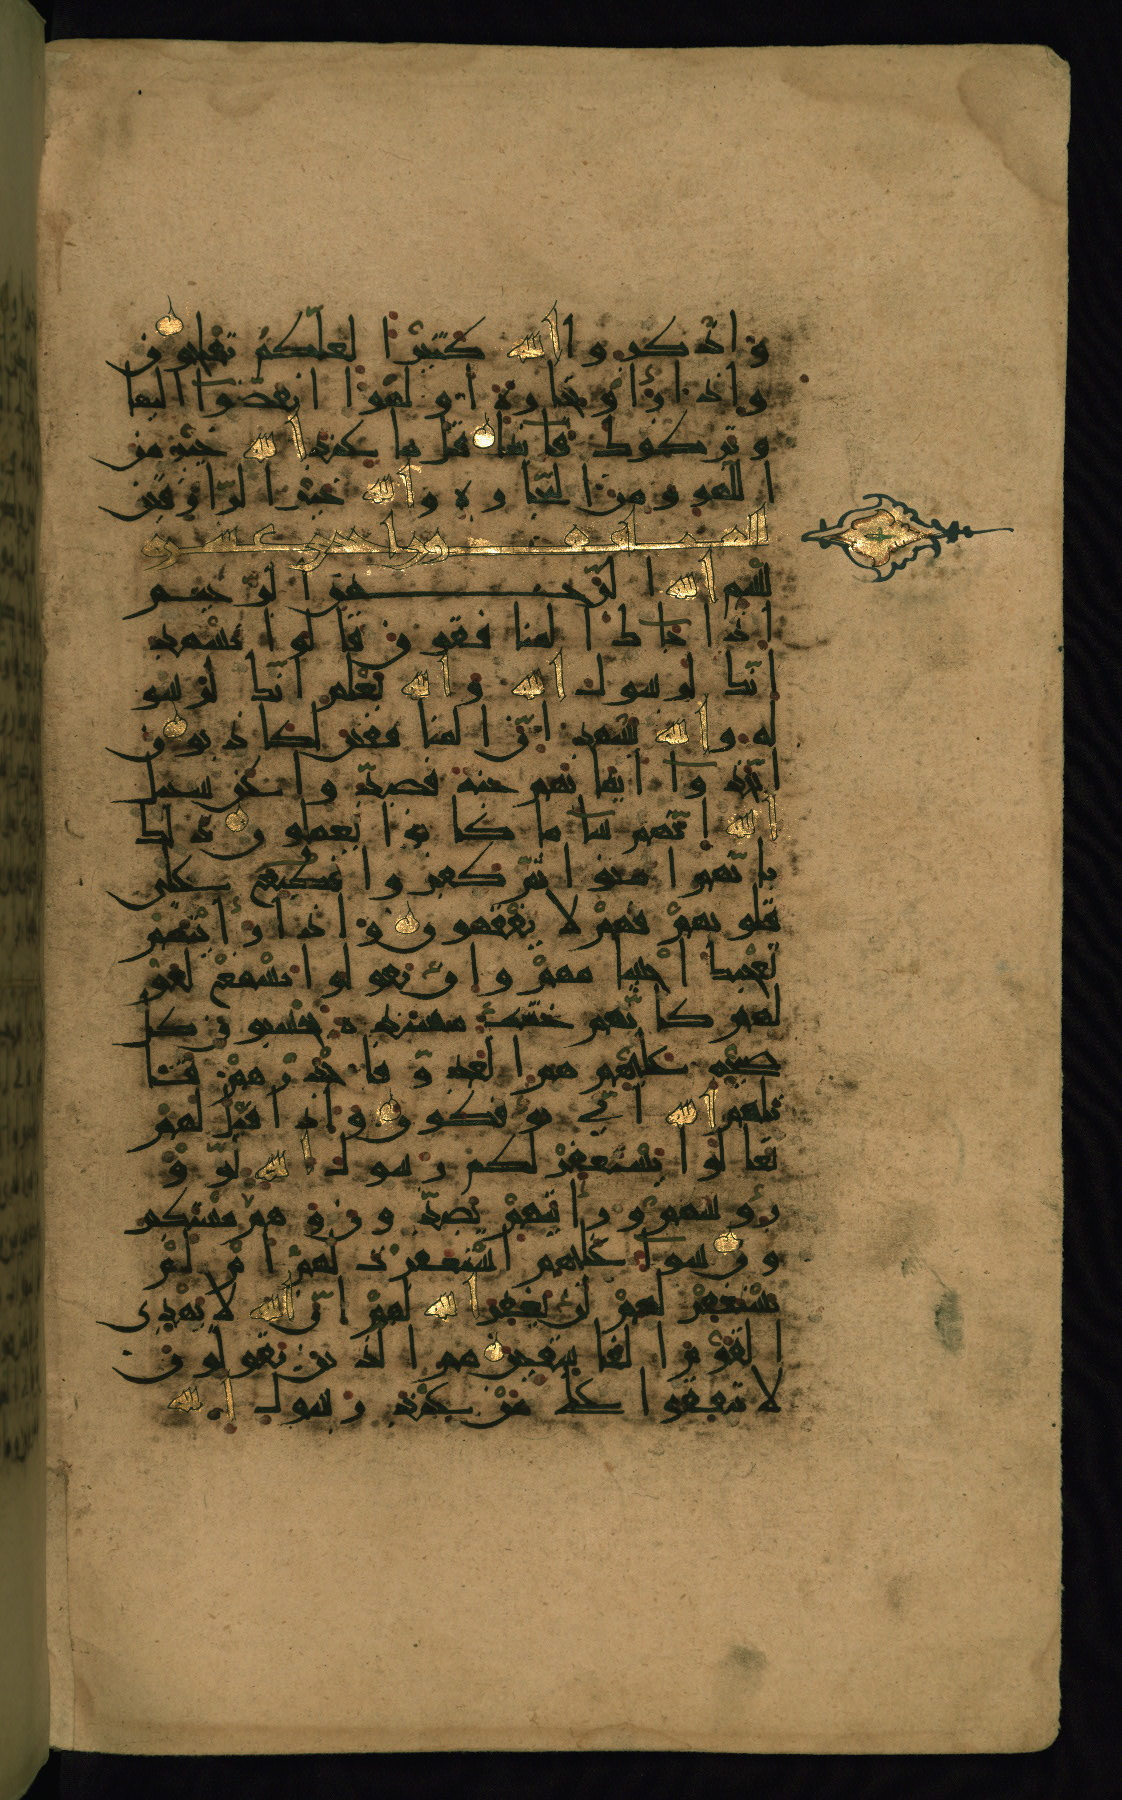 واذكروا الله كثيرا لعلكم تفلحون
واذا راوا تجارة او لهوا انفضوا اليها
وتركوك قائما قل ما عند الله خير من
اللهو ومن التجارة والله خير الرازقين
المنافقون احدى عشرة
بسم الله الرحمن الرحيم
اذا جاك المنافقون قالوا نشهد
انك لرسول الله والله يعلم انك لرسو
له والله يشهد ان المنافقين لكاذبون
اتخذوا ايمانهم جنة فصدوا عن سبيل
الله انهم سا ما كانوا يعملون ذلك
بانهم امنوا ثم كفروا فطبع على
قلوبهم فهم لا يفقهون واذا رايتهم
تعجبك اجسامهم وان يقولوا تسمع لقو
لهم كانهم خشب مسندة يحسبون كل
صيحة عليهم هم العدو فاحذرهم قا
تلهم الله انى يوفكون واذا قيل لهم
تعالوا يستغفر لكم رسول الله لووا
روسهم ورايتهم يصدون وهم مستكبر
ون سوا عليهم استغفرت لهم ام لم
تستغفر لهم لن يغفر الله لهم ان الله لا يهدى
القوم الفاسقين هم الذين يقولون
لا تنفقوا على من عند رسول الله